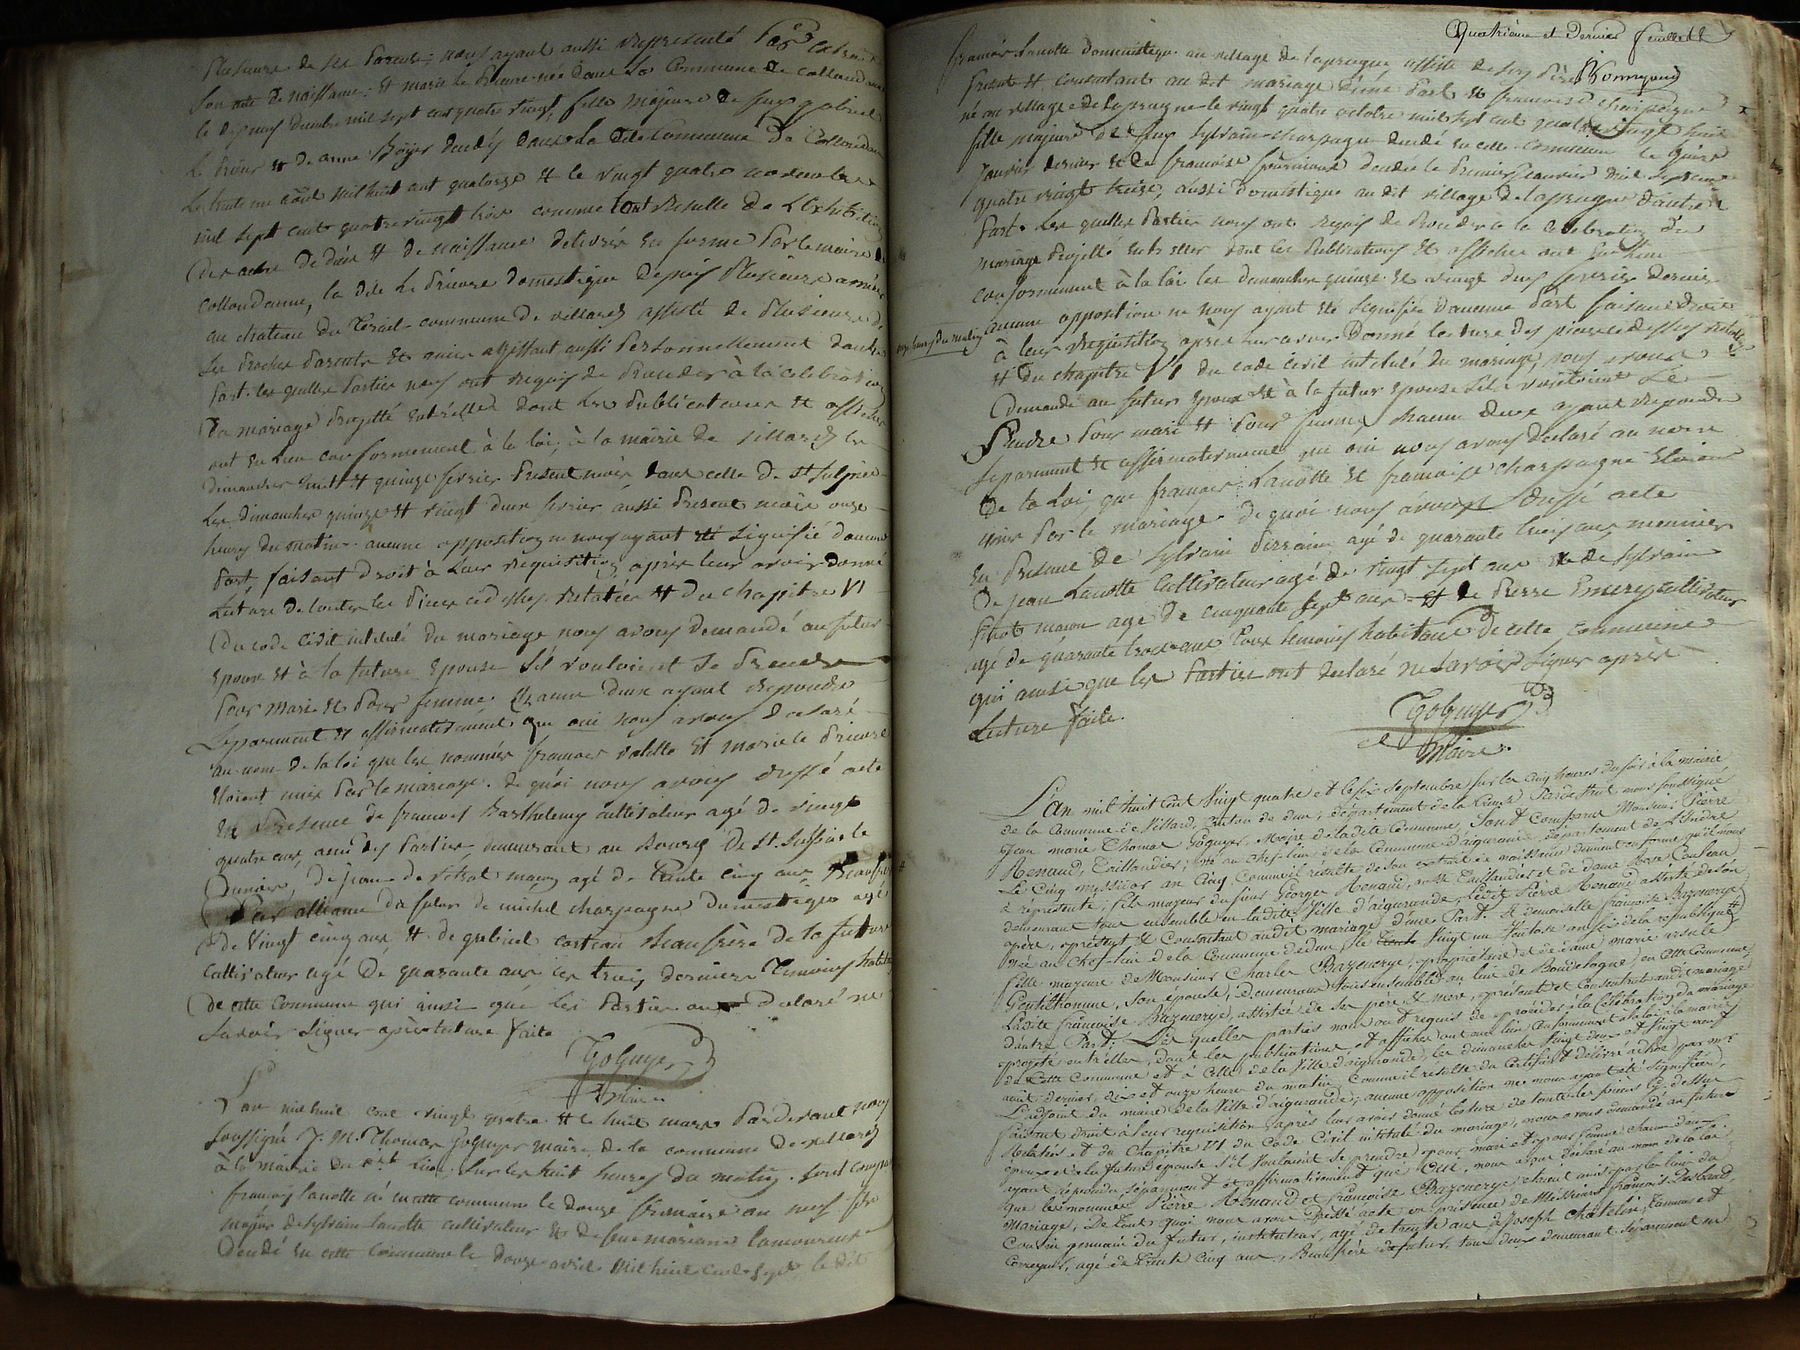 plusieurs de ses parents; nous ayant aussi représenté par extrait
son acte de naissance; et marie le Prieure née dans la Commune de Collondanne
le dix neuf mil sept cent quatre vingt, fille majeure de feu gabriel
Le Prieur et de anne Boyer décédés dans la dite Commune de Collondanne
Le trente un août mil huit cent quatorze et le vingt quatre novembre
mil sept cent quatre vingt trois comme tout résulte de L'Exhibition
des actes de décès et de naissance délivrés en forme par le maire de
Collondanne, la dite Le Prieure domestique depuis plusieurs années
au château du commune de villard assisté de plusieurs de
ses proches parents et amis agissant aussi personnellement d'autre
part. les quelles parties nous ont requis de procéder à la célébration
du mariage projetté entr'elles dont les publications et affiches
ont eu lieu conformément à la loi, à la mairie de villard les
dimanches huit et quinze février présent mois dans celle de st sulpice
Les dimanches quinze et vingt deux février aussi présent mois onze
heures du matin. aucune opposition ne nous ayant été signifié d'aucune
part, faisant droit à leur requisition, après leur avoir donné
Lecture de toutes les pièces cidessus relatées et du chapitre VI
du code civil intitulé du mariage nous avons demandé au futur
époux et à la future épouse s'il vouloient se prendre
pour mari et pour femme. Chacun deux ayant répondu
séparément et affirmativement que oui nous avons déclaré
au nom de la loi que les nommés francois et marie le Prieure
étoient unis par le mariage. de quoi nous avons dressé acte
en présence de francois Barthelemy cultivateur agé de vingt
quatre ans, ami des parties demeurant au Bourg de St. Sulpice le
Dunois, de jean maçon agé de trente cinq ans Beaufrère
Par alliance du futur de michel charpagne domestique agé
de vingt cinq ans et de gabriel Beaufrère de la future
Cultivateur agé de quarante ans les trois derniers Témoins habitants
de cette Commune qui ainsi que les parties ont déclaré ne
savoir signer après lecture faite
Goguyer
Maire
L'an mil huit cent vingt quatre et le huit mars Pardevant nous
soussigné J. M. Thomas Goguyer maire de la commune de villard
à la mairie du dit lieu. sur les huit heures du matin. sont comparus
francois lanotte né en cette commune le douze frimaire an neuf fils
majeur de sylvain lanotte cultivateur et de feue mariane lamoureux
Décédé en cette Commune le douze avril Mil huit cent sept le dit
Quatrième et Dernier feuillet
francois lanotte domestique au village de lapruegne assisté de son père
présent et consentant au dit mariage d'une part et francoise charpagne
né au village de Laprugne le vingt quatre octobre mil sept cent quatre vingt huit
fille majeure de feu sylvain charpagne décédé en cette Commune le quinze
janvier dernier et de francoise décédée le premier janvier mil sept cent
quatre vingt treize, aussi domestique audit village de lapruegne d'autre
part. Les quelles parties nous ont requis de procéder à la célébration du
mariage projetté entr elles dont les publications et affiches ont eu lieu
conformément à la loi les dimanches quinze et vingt deux février dernier
onze heures du matin
aucune opposition ne nous ayant été signifié d'aucune part faisant droit
à leur requisition, après leur avoir Donné lecture des pièces cidessus relatées
et du chapitre VI du code civil intitulé du mariage, nous avons
demandé au futur époux et à la future épouse s'ils vouloient se
Prendre Pour mari et Pour femme chacun deux ayant répondu
séparément et affirmativement que oui nous avons déclaré au nom
de la loi, que francois Lanotte et francoise charpagne étoient
unis par le mariage. de quoi nous avons Dressé acte
en présence de sylvain agé de quarante ans meunier
de jean Lanotte Cultivateur agé de vingt sept ans et de sylvain
maçon agé de cinquante sept ans et de Pierre Emery cultivateur
agé de quarante trois ans tous témoins habitans de cette commune
qui ainsi que les parties ont déclaré ne savoir signer après
Lecture faite.
Goguyer
Maire.
L'an mil huit cent Vingt quatre et le six Septembre sur les cinq heures du soir à la mairie
de la Commune de Villard, Canton de dun, département de la Creuse Pardevant nous soussigné
Jean marie Thomas Goguyer, Maire de la dite Commune, Sont Comparus Monsieur Pierre
Renaud, Taillandier, né au chef-lieu de la Commune d'aigurande département de l'Indre
Le Cinq messidor an Cinq Comme il résulte de son extrait de naissance dûment en forme qu'il nous
a représenté; fils majeur du sieur George Renaud, aussi Taillandier et de dame
demeurant tous ensemble en la dite Ville d'aigurande, ledit Pierre Renaud assisté de son
père, présent & Consentant audit mariage d'une Part. Et demoiselle françoise Bazenerye
née au chef-lieu de la Commune de dun, le Vingt un Ventose an six de la république
fille majeure de Monsieur Charles Bazenerye, propriétaire et de dame marie
Gentilhomme, son épouse, demeurant tous ensemble au lieu de Boudelogne en cette Commune,
Ladite françoise Bazenerye, assistée de ses père & mere, présents et Consentants audit mariage
d'autre Part. Les quelles parties nous ont requis de procéder à la Célébration du mariage
projeté entr'elles, dont les publications et affiches ont eu lieu Conformément à la loi à la mairie
de Cette Commune et à Celle de la Ville d'aigurande, les dimanches Vingt deux et Vingt neuf
août dernier, dix et onze heures du matin, Comme il résulte du Certificat délivré par mr.
L'adjoint du maire de la Ville d'aigurande; aucune opposition ne nous ayant été signifiée,
faisant droit à leur requisition, après leur avoir donné lecture de toutes les pièces cy-dessus
Relatées et du Chapitre VI du Code Civil intitulé du mariage, nous avons demandé au futur
époux et à la future épouse s'il Voulaient se prendre pour mari et pour femme, chacun deux
ayant répondu séparément et affirmativement que Oui, nous avons déclaré au nom de la loi
que les nommés Pierre Renaud et françoise Bazenerye, étaient unis par les liens du
Mariage, De tout quoi nous avons Dressé acte en présence de Messieurs françois
Cousin germain du futur, instituteur, agé de trente ans & Joseph Chatelin, Tanneur et
Corroyeur, agé de trente Cinq ans, Beaufrère du futur, tous deux demeurant séparément en